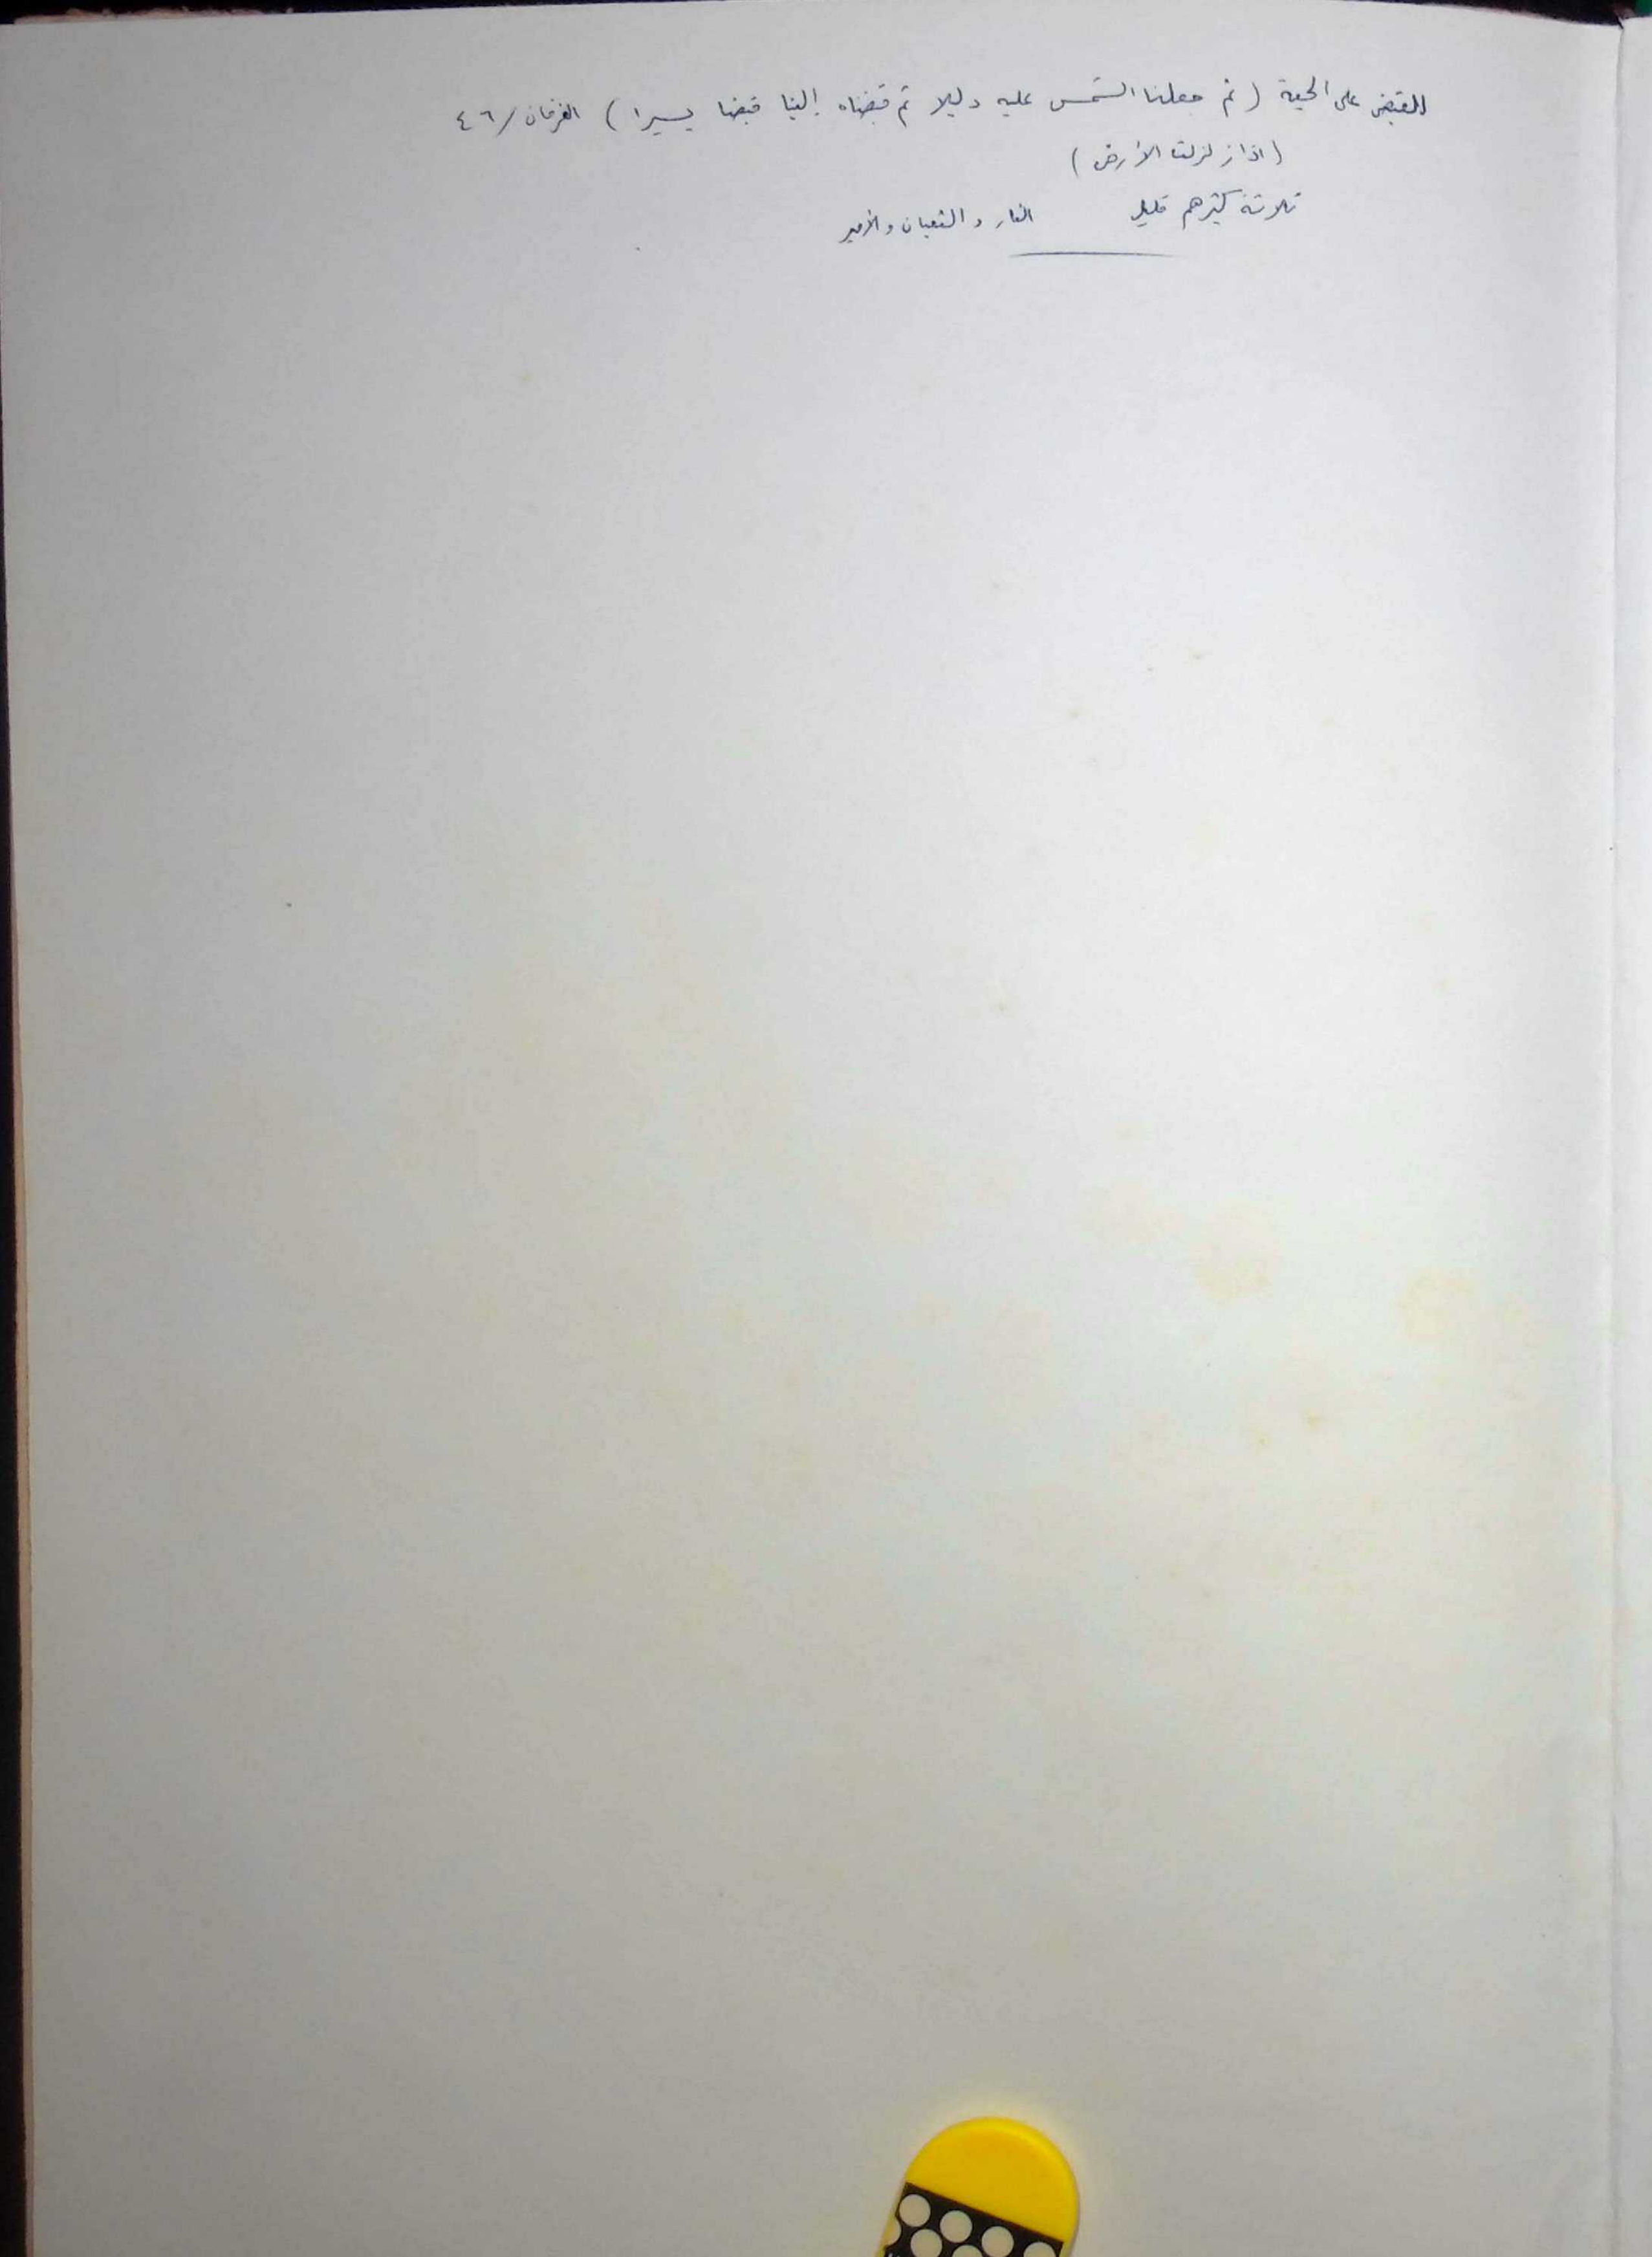 للقبض على الحية (ثم جعلنا الشمس عليه دليلا ثم قبضناه إلينا قبضا يسيرا) الفرقان/٤٦
(اذا زلزلت الأرض)
ثلاثة كثيرهم قليل النار والثعبان والأمير